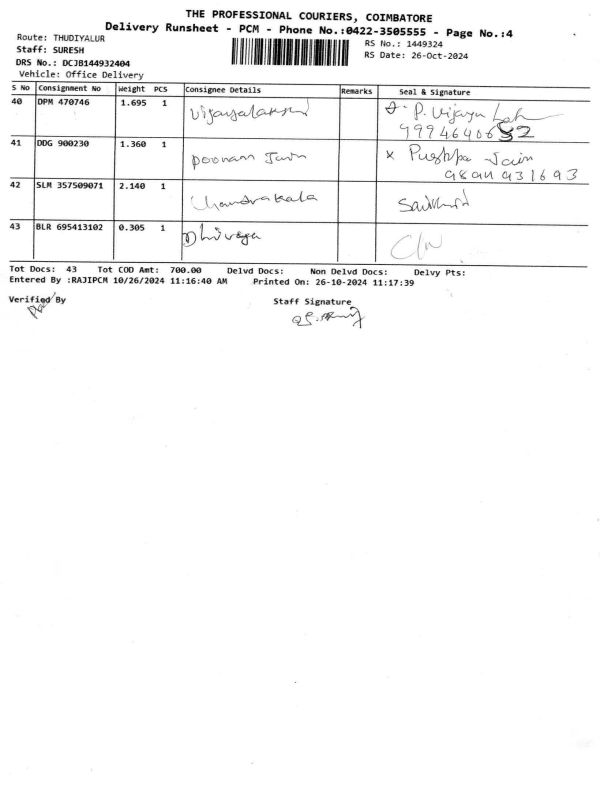 THE PROFESSIONAL COURIERS, COIMBATORE
Delivery Runsheet - PCM - Phone No.:0422-3505555 - Page No.:4
Route: THUDIYALUR
RS No.: 1449324
Staff: SURESH
RS Date: 26-Oct-2024
DRS No.: DCJB144932404
Vehicle: Office Delivery
S No Consignment No Weight PCS Consignee Details Remarks Seal & Signature
40 DPM 470746 1.695 1 P. Vijaya
41 DDG 900230 1.360 1 poonam Jain x Pushpa Jain
42 SLM 357509071 2.140 1 Chandrakala
43 BLR 695413102 0.305 1
Tot Docs: 43 Tot COD Amt: 700.00 Delvd Docs: Non Delvd Docs: Delvy Pts:
Entered By :RAJIPCM 10/26/2024 11:16:40 AM Printed On: 26-10-2024 11:17:39
Verified By Staff Signature